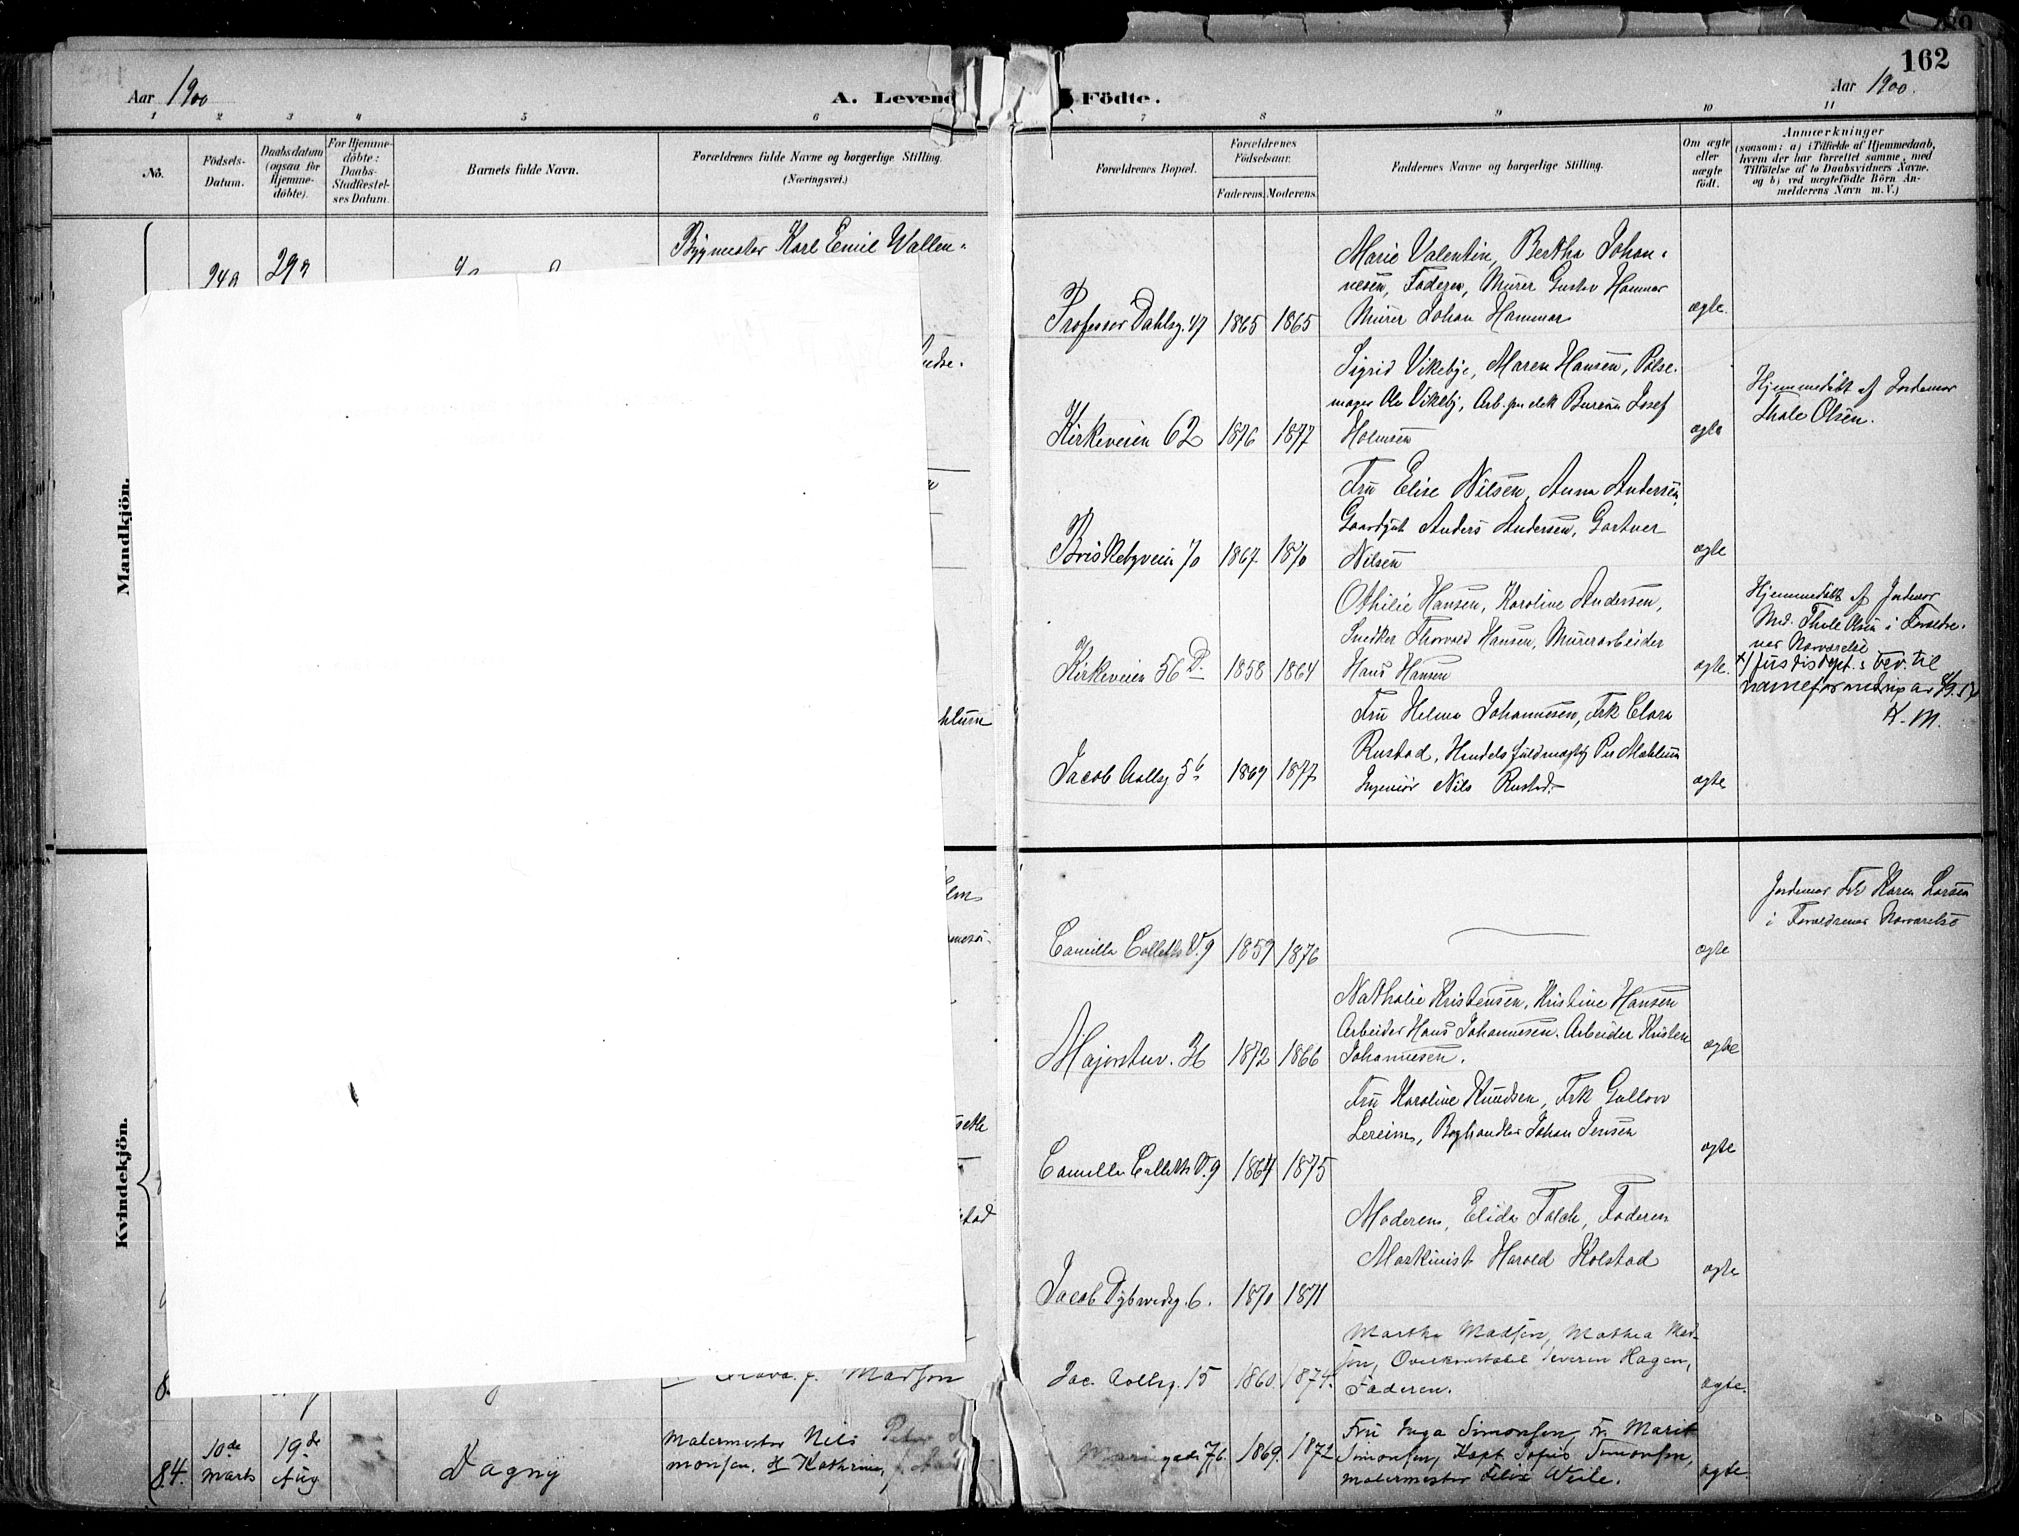 162
Aar 1900
A. Levend Födte.
Aar 1900.
1 2 3 4 5 6 7 8 9 10 11
No.
Födsels-
Datum.
Daabsdatum
(ogsaa för
Hjemme-
döbte).
For Hjemme-
döbte:
Daabs-
Stadfæstel-
ses Datum.
Barnets fulde Navn.
Forældrenes fulde Navne og borgerlige Stilling.
(Næringsvei.)
Forældrenes Bopæl.
Forældrenes
Födselsaar.
Faderens. Moderens.
Faddernes Navne og borgerlige Stilling.
Om ægte
eller
uægte
födt.
Anmærkninger
(saasom: a) i Tilfælde af Hjemmedaab,
hvem der har forrettet samme, med
Tilföielse af to Daabsvidners Navne.
og b) ved uægtefödte Börn An-
melderens Navn m. V.)
Mandkjön.
Bygmester Karl Emil Wallen-
29
Professor Dahlsg. 47 1865 1865
Marie Valentin, Bertha Johan-
nesen, Faderen, Murer Gustav Hammar
Murer Johan Hammar
ægte.
Kirkeveien 62 1876 1877
Sigrid Vikebye, Maren Hansen, Pølse-
mager Ole Vikeby, Arb. Josef
Holmsen
ægte
Hjemmedøbt af Jordemor
Thale Olsen.
Briskebyveien 70 1867 1870
Fru Elise Nilsen, Anna Andersen,
Gaardsgut Anders Andersen, Gartner
Nilsen
ægte
Kirkeveien 56 D. 1858 1864
Othilie Hansen, Karoline Andersen,
Snedker Thorvald Hansen, Murerarbeider
Hans Hansen
ægte.
Hjemmedøbt af Jordemor
Mad. Thale Olsen i Forældre-
nes Nærværelse
x) Justisdept.s bev. til
K. M.
Jacob Aallsg 5b 1869 1877
Fru Helma Johannesen, Frk Clara
Rustad, Handelsfuldmægtig Per Mæhlum
Ingeniør Nils Rustad.
ægte
Kvindekjön.
Camilla Colletts V. 9 1859 1876
ægte
Jordemor Frk Karen Larsen
i Forældrenes Nærværelse
Majorstuv. 36 1872 1866
Nathalie Kristensen, Kristine Hansen
Arbeider Hans Johannesen. Arbeider Kristen
Johannesen.
ægte
Camilla Colletts V. 9 1864 1875
Fru Karoline Knudsen, Frk
Lereim, Boghandler Johan Jensen
ægte
Jacob Dybwadsg. 6. 1870 1871
Moderen, Elida Falck, Faderen
Maskinist Harald Kolstad
ægte
Madsen
Jac. Aallsg. 15 1860. 1874.
Martha Madsen, Mathea Mad-
sen, Overkonstabel Severin Hagen,
Faderen.
ægte.
84. 10de
marts
19de
Aug
Dagny
Malermester Nils Peter Si-
monsen, H Kathrine
76. 1869. 1872
Fru Inga Simonsen, Fr. Marit
Simonsen, Kapt. Simonsen,
malermester Felix Weile.
ægte.